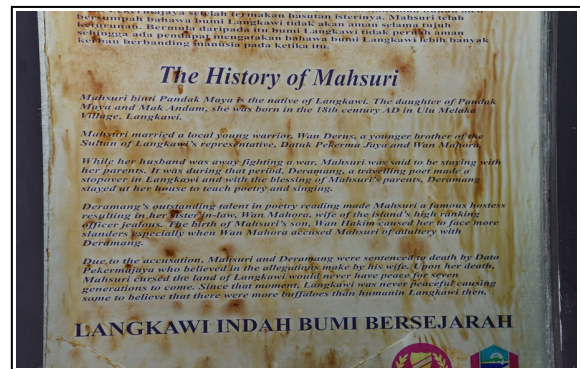 Pekermajaya setelah termakan hasutan isterinya. Mahsuri telah
bersumpah bahawa bumi Langkawi tidak akan aman selama tujuh
keturunan. Bermula daripada itu bumi Langkawi tidak pernah aman
sehingga ada pendapat mengatakan bahawa bumi Langkawi lebih banyak
kerbau berbanding manusia pada ketika itu.
The History of Mahsuri
Mahsuri binti Pandak Maya is the native of Langkawi. The daughter of Pandak
Maya and Mak Andam, she was born in the 18th century AD in Ulu Melaka
Village, Langkawi.
Mahsuri married a local young warrior, Wan Derus, a younger brother of the
Sultan of Langkawi's representative, Datuk Pekerma Jaya and Wan Mahora.
While her husband was away fighting a war, Mahsuri was said to be staying with
her parents. It was during that period, Deramang, a travelling poet made a
stopover in Langkawi and with the blessing of Mahsuri's parents, Deramang
stayed at her house to teach poetry and singing.
Deramang's outstanding talent in poetry reading made Mahsuri a famous hostess
resulting in her sister in-law, Wan Mahora, wife of the island's high ranking
officer jealous. The birth of Mahsuri's son, Wan Hakim caused her to face more
slanders especially when Wan Mahora accused Mahsuri of adultery with
Deramang.
Due to the accusation, Mahsuri and Deramang were sentenced to death by Dato
Pekermajaya who believed in the allegations make by his wife. Upon her death,
Mahsuri cursed the land of Langkawi would never have peace for seven
generations to come. Since that moment, Langkawi was never peaceful causing
some to believe that there were more buffaloes than humanin Langkawi then.
LANGKAWI INDAH BUMI BERSEJARAH